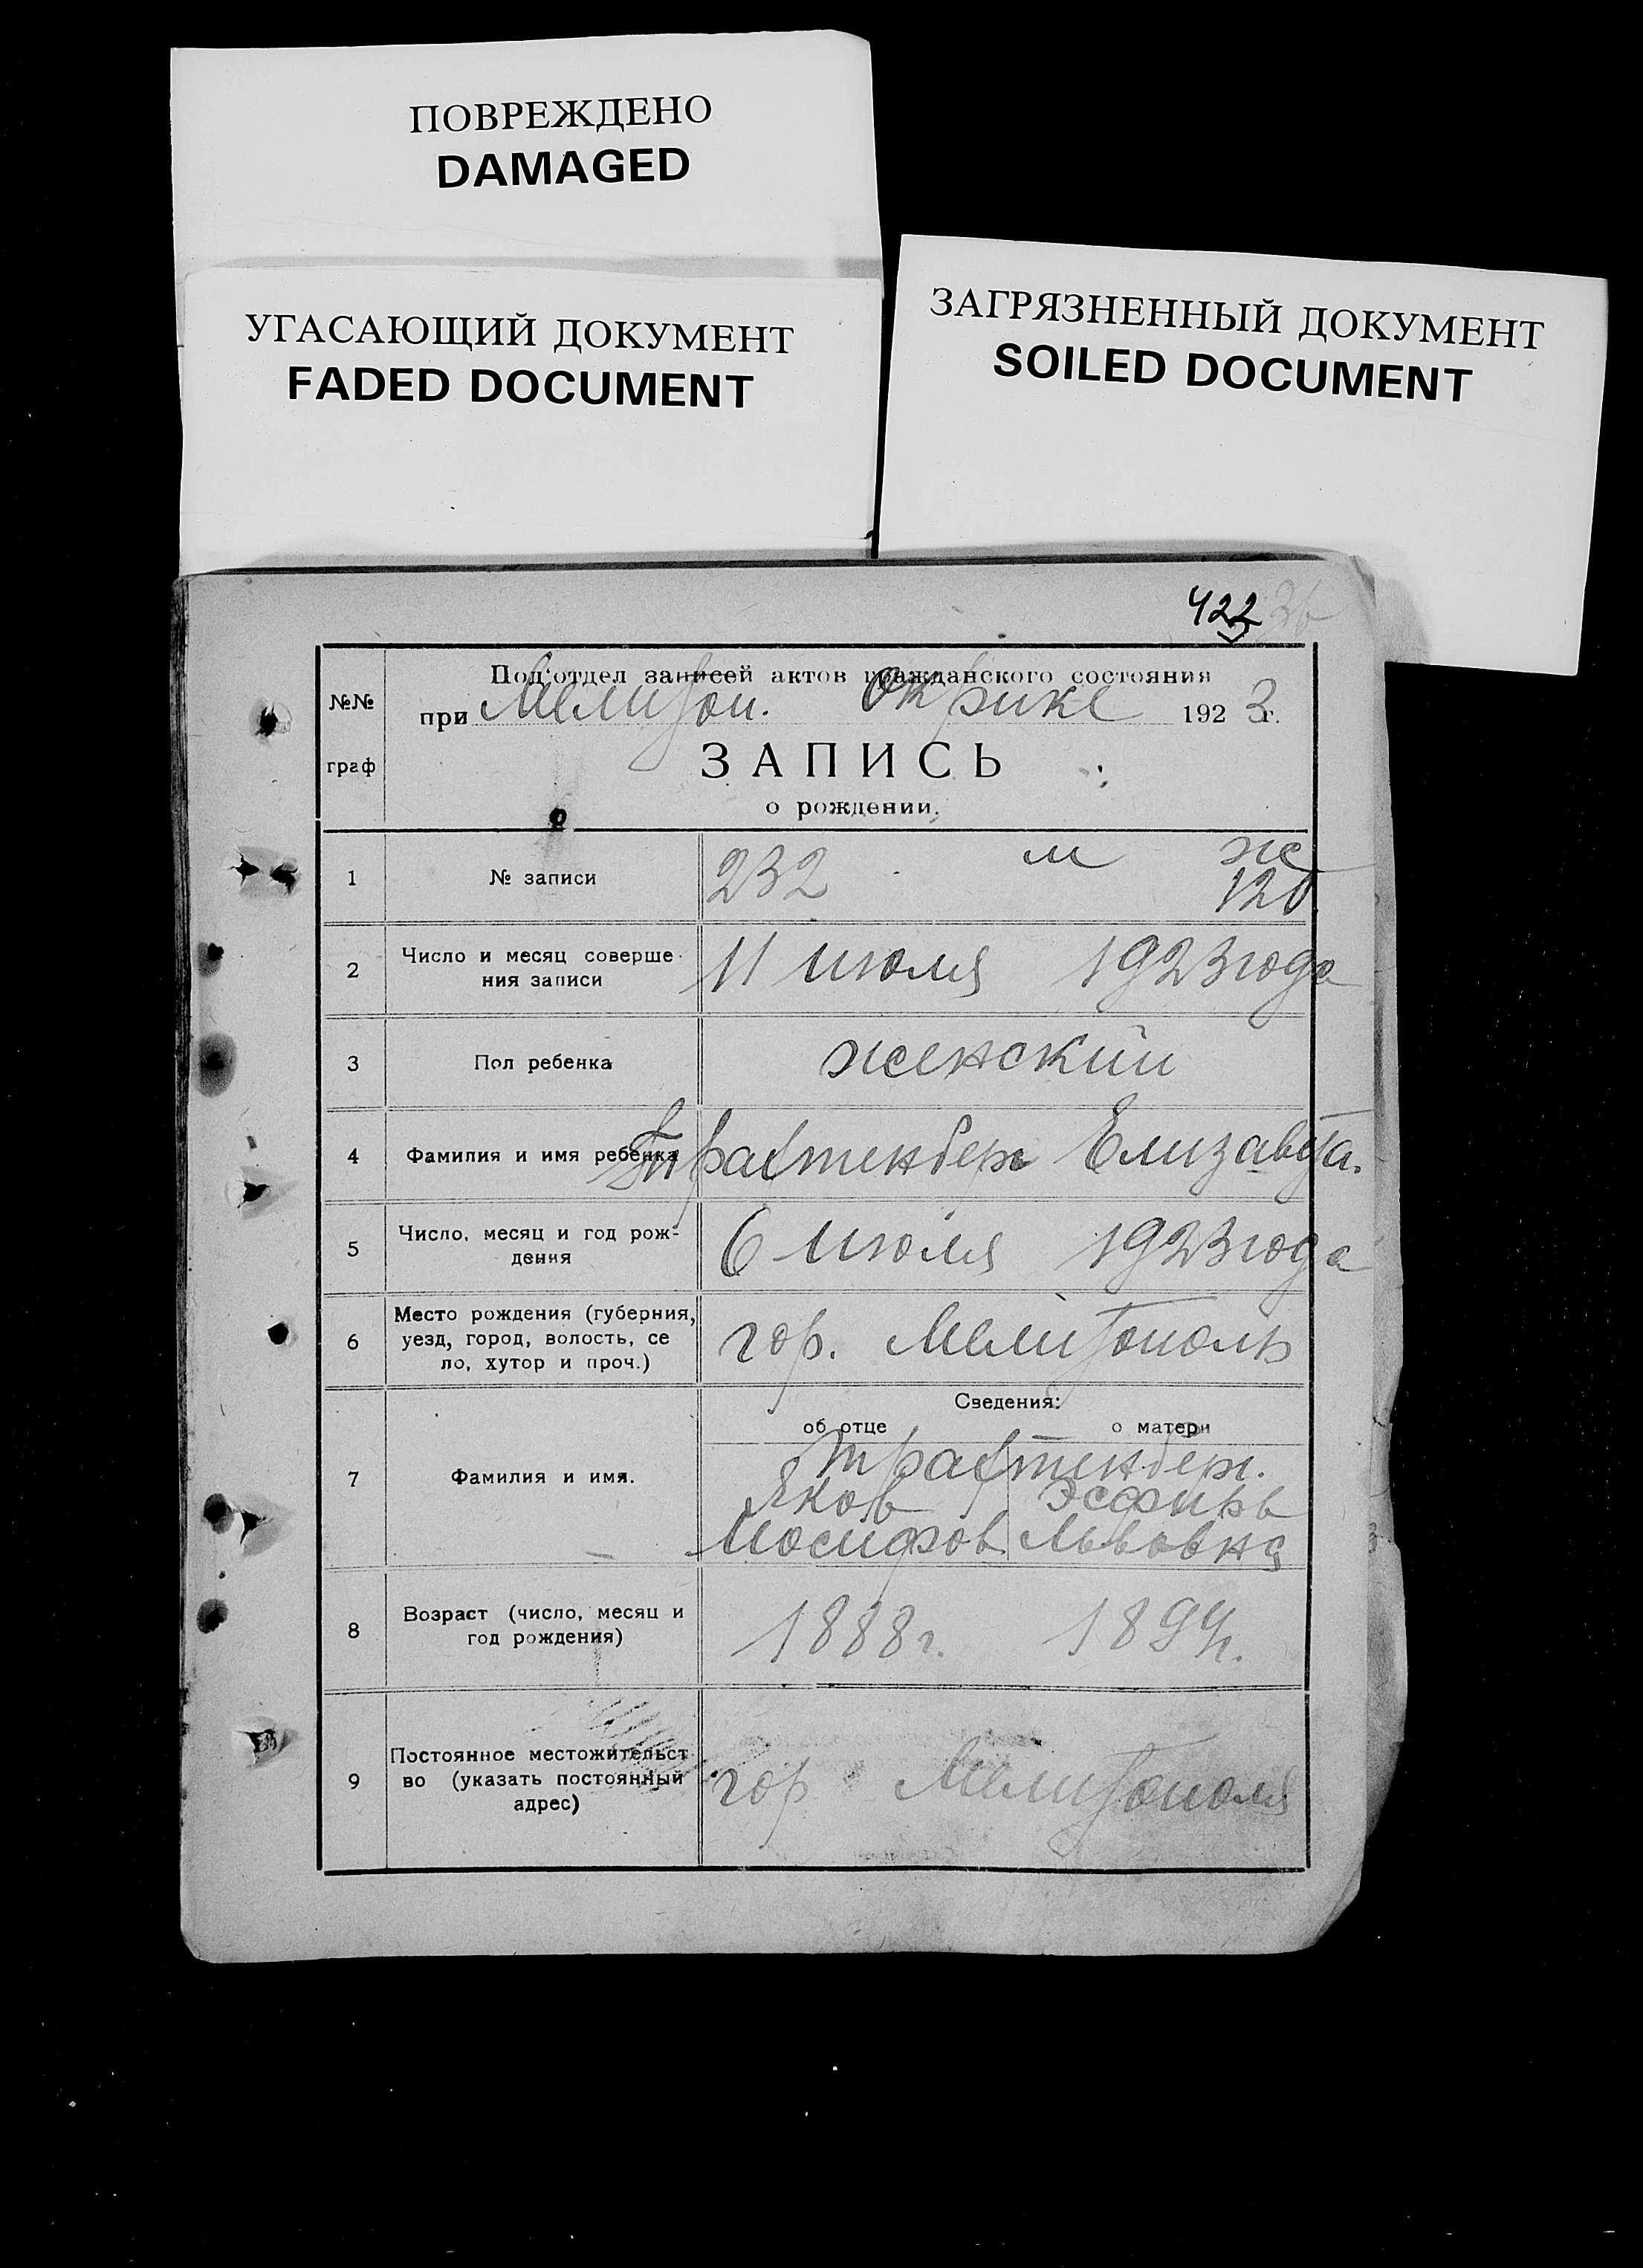 ПОВРЕЖДЕНО
DAMAGED
УГАСАЮЩИЙ ДОКУМЕНТ
FADED DOCUMENT
ЗАГРЯЗНЕННЫЙ ДОКУМЕНТ
SOILED DOCUMENT
422
№№ граф
Под'отдел записей актов гражданского состояния
при Мелитоп. Окрике 1923 г.
ЗАПИСЬ
о рождении.
м ж
1 № записи 232 120
2 Число и месяц соверше-
ния записи 11 июля 1923 года
3 Пол ребенка женский
4 Фамилия и имя ребенка Трахтенберг Елизавета.
5 Число, месяц и год рож-
дения 6 июля 1923 года
6 Место рождения (губерния,
уезд, город, волость, се
ло, хутор и проч.) гор. Мелитополь
Сведения:
об отце о матери
7 Фамилия и имя. Трахтенберг.
Яков Эсфирь
Иосифов Львовна
8 Возраст (число, месяц и
год рождения) 1888 г. 1894 г.
9 Постоянное местожительст
во (указать постоянный
адрес) гор Мелитополя